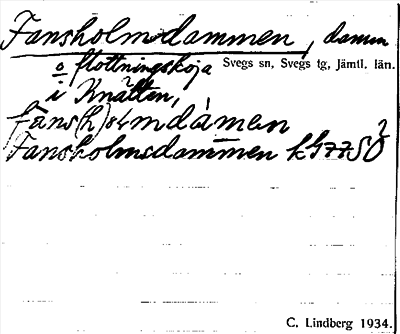 Fansholmsdammen, damm
o flottningskoja Svegs sn, Svegs tg, Jämtl. län.
i Knätten,
Fansholmsdammen k4775Ö
C. Lindberg 1934.